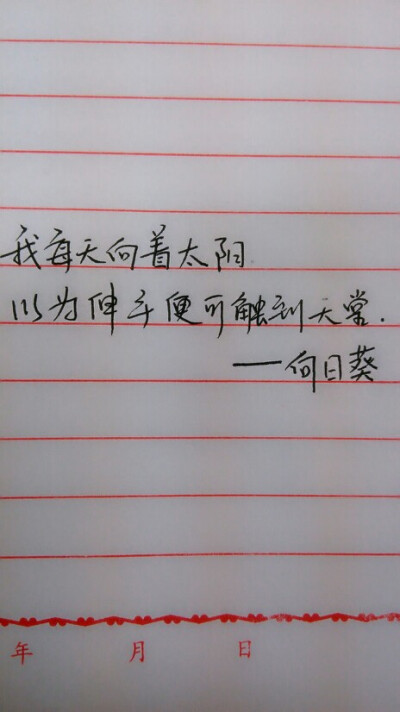 我每天向着太阳
以为伸手便可触到天堂.
——向日葵
年 月 日